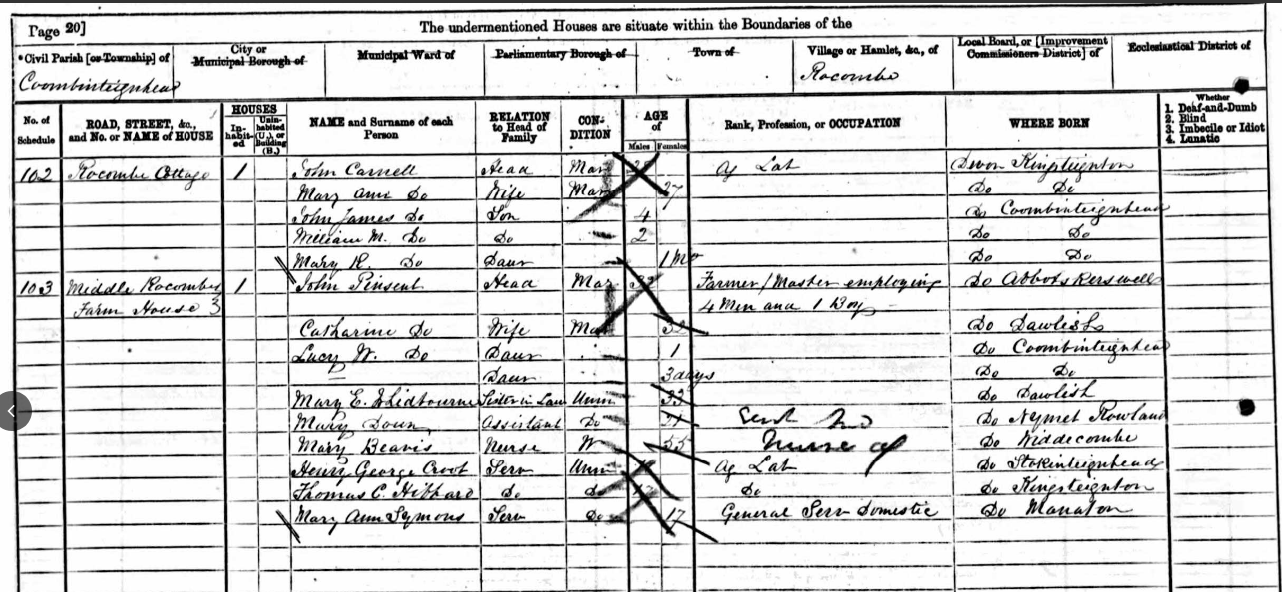 Page 20]
The undermentioned Houses are situate within the Boundaries of the
Civil Parish [or Township] of
City or Municipal Borough of
Municipal Ward of
Parliamentary Borough of
Town of
Village or Hamlet, &c., of
Local Board, or [Improvement Commissioners District] of
Ecclesiastical District of
Coombinteignhead
Rocombe
No. of Schedule
ROAD, STREET, &c., and No. or NAME of HOUSE
HOUSES
In-habit-ed
Unin-habited (U.), or Building (B.)
NAME and Surname of each Person
RELATION to Head of Family
CON-DITION
AGE of
Males
Females
Rank, Profession, or OCCUPATION
WHERE BORN
Whether
1. Deaf-and-Dumb
2. Blind
3. Imbecile or Idiot
4. Lunatic
102 Rocombe Cottage 1 John Carnell Head Mar Ag Lab Devon Kingsteignton
Mary Ann Do Wife Mar 27 Do Do
John James Do Son 4 Do Coombinteignhead
William M. Do Do 2 Do Do
Mary K. Do Daur 1 Mo Do Do
103 Middle Rocombe 1 John Pinsent Head Mar Farmer/Master employing Do Abbotskerswell
Farm House 3 4 Men and 1 Boy
Catharine Do Wife Mar 32 Do Dawlish
Lucy W. Do Daur 1 Do Coombinteignhead
Daur 3 days Do Do
Mary E. Shidbourne Sister in Law Unm 33 Do Dawlish
Mary Assistant Do Do Nymet Rowland
Mary Beavis Nurse W 55 Nurse Do Widdecombe
Henry George Croot Serv Unm Ag Lab Do Stokinteignhead
Thomas C. Hibbard Do Do Do Do Kingsteignton
Mary Ann Symons Serv Do 17 General Serv Domestic Do Manaton